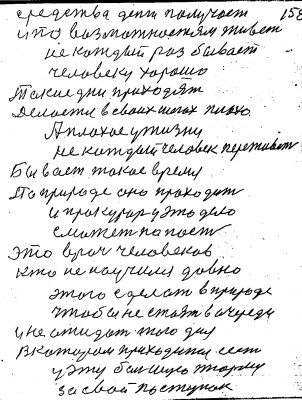 средства дети получает 158
что возможностям живет
не каждый раз бывает
человеку хорошо
Такие дни приходят
Делается в своих шагах плохо
А плохое у жизни
не каждый человек переживает
Бывает такое время
По природе оно проходит
и прокурор у это дело
сможет попост
это врач человеков
кто не научился давно
этого сделать в природе
чтоб и не стоять в очереди
и не ожидать того дня
В котором приходится сесть
у эту большую тюрму
за свой поступок